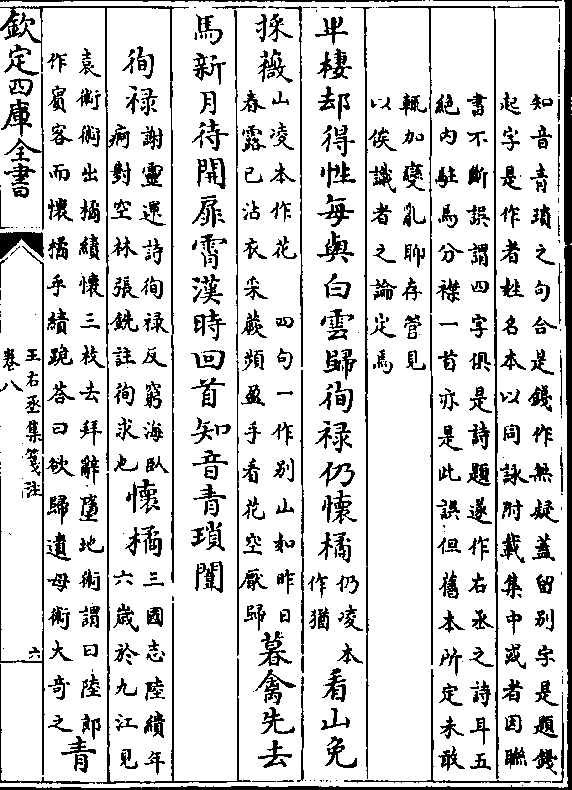 知音青瑣之句合是錢作無疑蓋留别字是題錢
起字是作者姓名本以同詠附載集中或者因聯
書不斷誤謂四字俱是詩題遂作右丞之詩耳五
絶内駐馬分襟一首亦是此誤但舊本所定未敢
輒加變亂聊存管見
以俟識者之論定焉
卑棲却得性每與白雲歸徇禄仍懷橘仍凌本作猶看山免
採薇山凌本作花 四句一作别山如昨日春露已沾衣采蕨頻盈手看花空厭歸暮禽先去
馬新月待開扉霄漢時回首知音青瑣闈
徇禄謝靈運詩徇禄反窮海卧疴對空林張銑註徇求也懷橘三國志陸績年六歲於九江見
袁術術出橘績懷三枚去拜辭墮地術謂曰陸郎作賓客而懷橘乎績跪答曰欲歸遺母術大奇之青
欽定四庫全書
王右丞集箋註
卷八
六